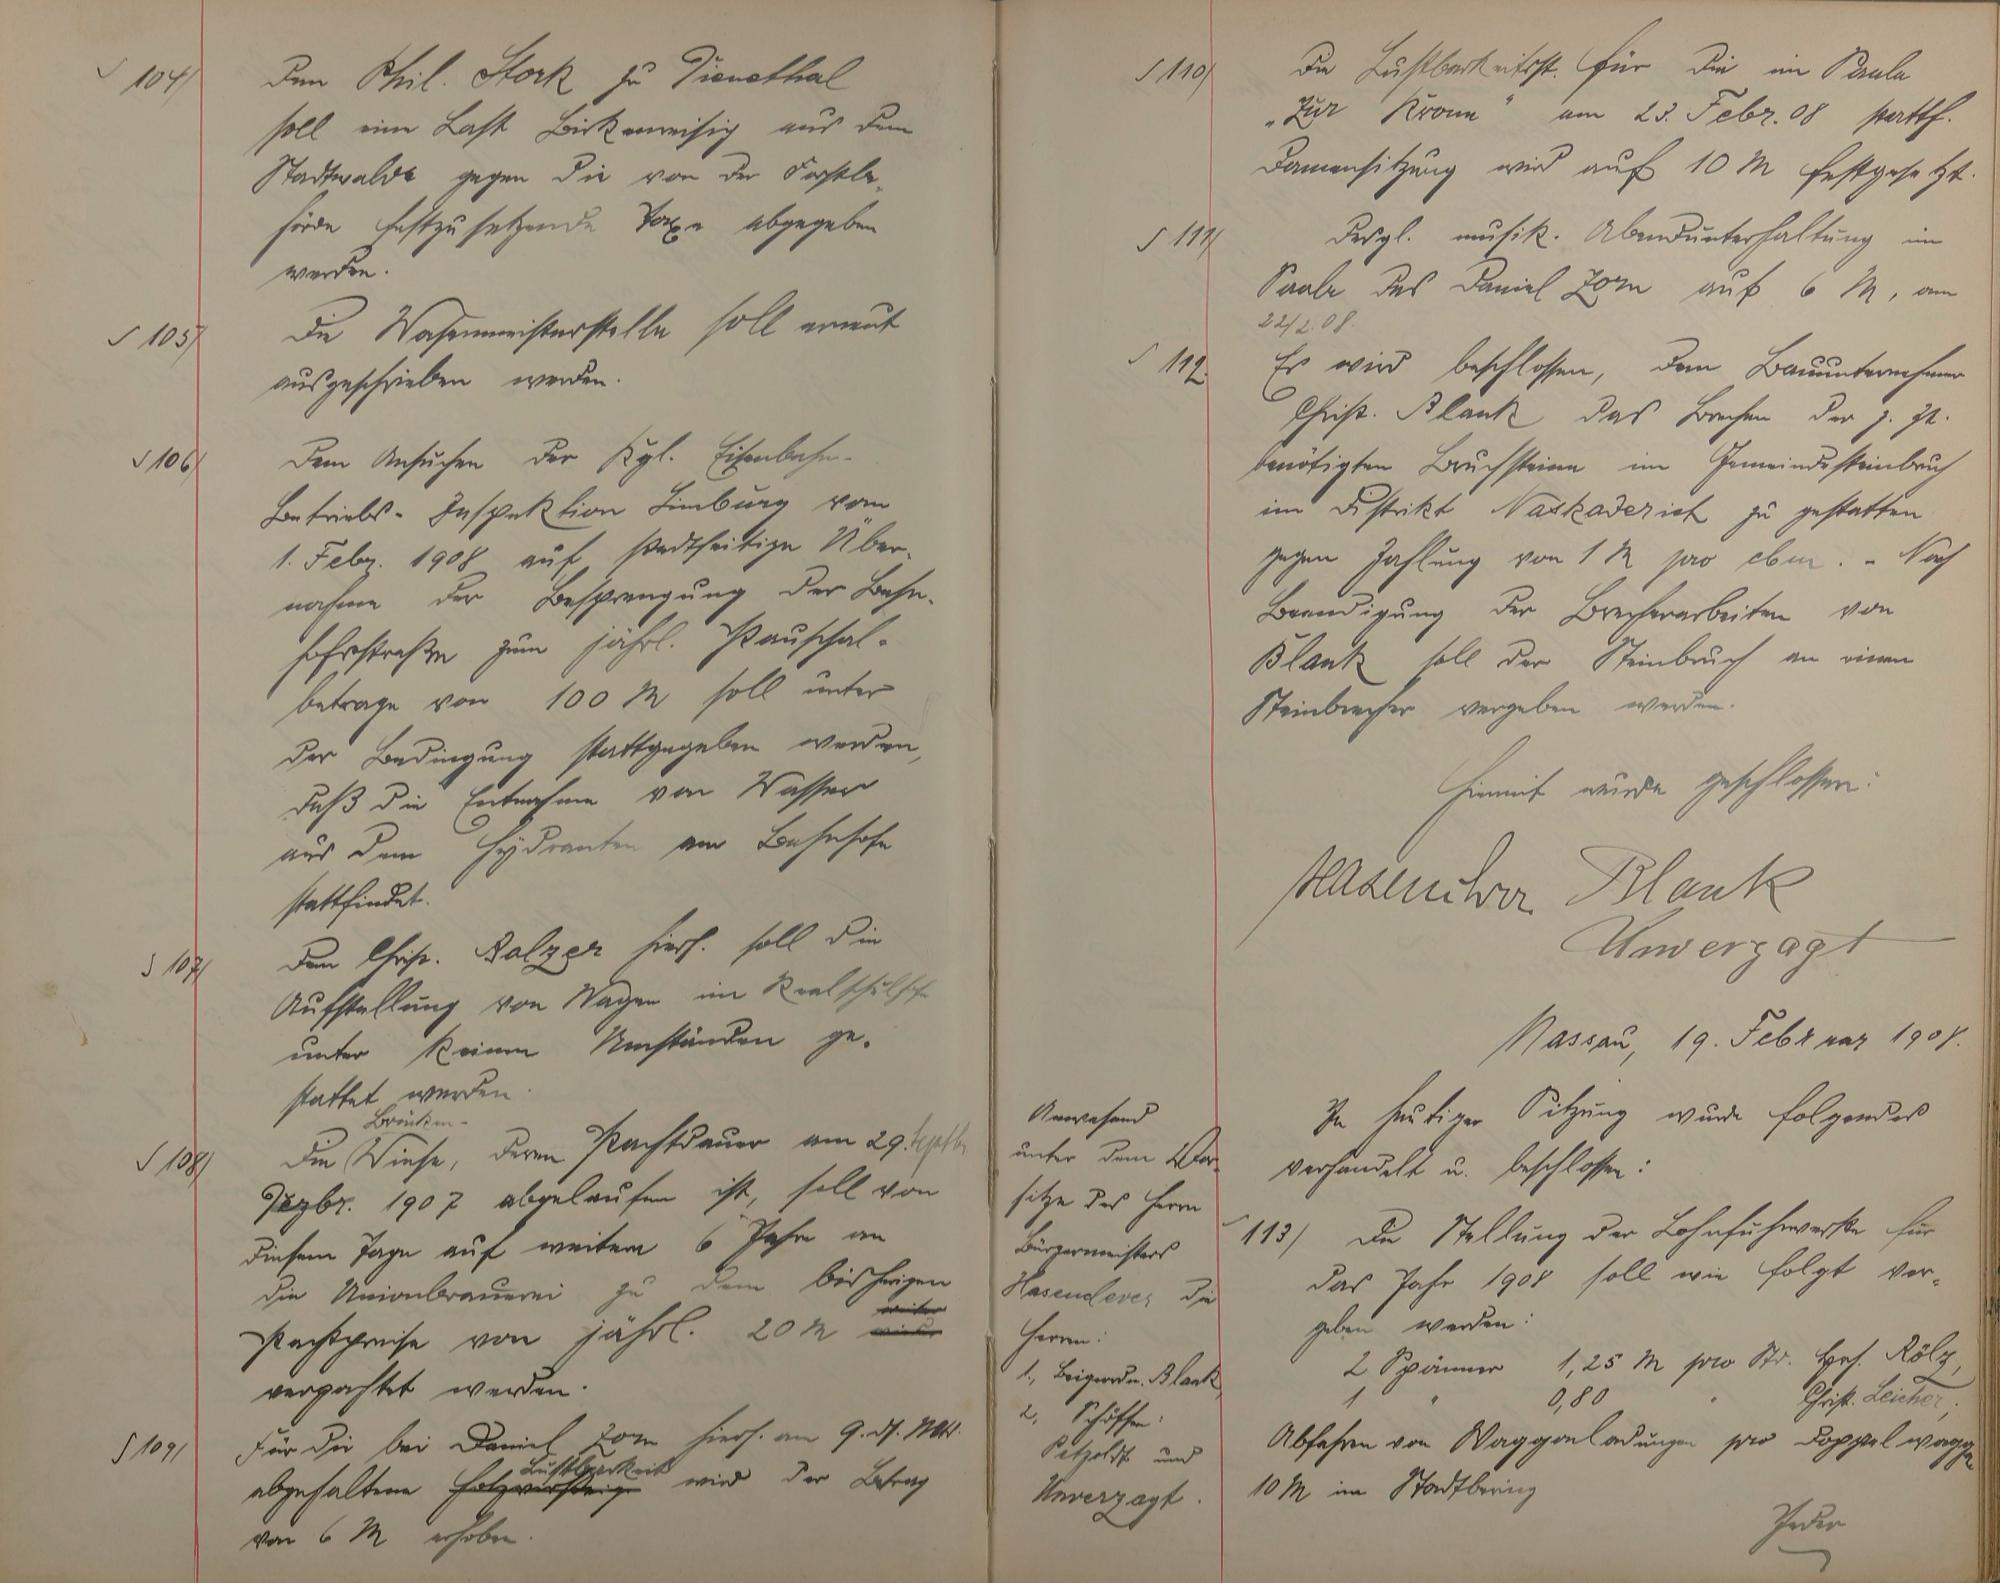 § 104/ Dem Phil. Stork zu Dienethal
soll eine Last Birkenreisig aus dem
Stadtwalde gegen die von der Forstbe-
hörde festzusetzende Taxe abgegeben
werden.
§ 105/ Die Wasenmeisterstelle soll erneut
ausgeschrieben werden.
§ 106/ Dem Ansuchen der Kgl. Eisenbahn-
Betriebs-Inspektion Limburg vom
1. Febr. 1908 auf stadtseitige Über-
nahme der Besprengung der Bahn-
hofstraße zum jährl. Pauschal-
betrage von 100 M soll unter
der Bedingung stattgegeben werden,
daß die Entnahme von Wasser
aus dem Hydranten am Bahnhofe
stattfindet.
§ 107/ Dem Christ. Balzer hiers. soll die
Aufstellung von Wagen im Realschulhofe
unter keinen Umständen ge-
stattet werden.
Brücken-
§ 108/ Die Wiese, deren Pachtdauer am 29. Septbr.
Dezbr. 1907 abgelaufen ist, soll von
diesem Tage auf weitere 6 Jahre an
die Unionbrauerei zu dem bisherigen
Pachtpreise von jährl. 20 M
verpachtet werden.
§ 109/ Für die bei Daniel Zorn hiers. am 9. ds. Mts.
Lustbarkeit
abgehaltene wird der Betrag
von 6 M erhoben.
§ 110/ Die Lustbarkeitsst. für die im Saale
„Zur Krone" am 23. Febr. 08 stattf.
Damensitzung wird auf 10 M festgesetzt.
§ 111/ Desgl. musik. Abendunterhaltung im
Saale des Daniel Zorn auf 6 M, am
22/2.08.
§ 112. Es wird beschlossen, dem Bauunternehmer
Christ. Blank das Brechen der z. Zt.
benötigten Bruchsteine im Gemeindesteinbruch
im Distrikt zu gestatten
gegen Zahlung von 1 M pro cbm. - Nach
Beendigung der Brecherarbeiten von
Blank soll der Steinbruch an einen
Steinbrecher vergeben werden.
Hiermit wurde geschlossen:
Hasenclever Blank
Unverzagt
Nassau, 19. Februar 1908.
In heutiger Sitzung wurde folgendes
verhandelt u. beschlossen:
Anwesend
unter dem Vor-
sitze des Herrn
Bürgermeisters
Hasenclever die
Herren:
1., Beigeordn. Blank
2, Schöffen:
Petzoldt und
Unverzagt.
§ 113/ Die Stellung der Lohnfuhrwerke für
das Jahr 1908 soll wie folgt ver-
geben werden:
2 Spänner 1,25 M pro Std. Hch. Rölz,
1 " 0,80 " Christ. Leicher;
Abfahren von Waggonladungen pro Doppelwaggon
10 M im Stadtbering
Jeder